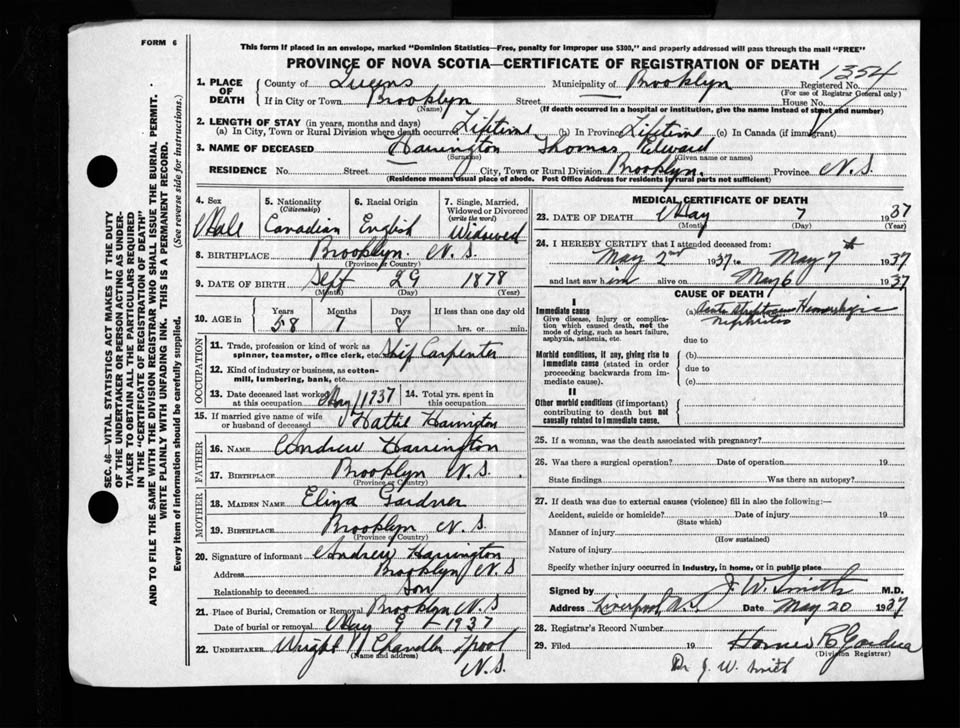 FORM 6
This form if placed in an envelope, marked "Dominion Statistics—Free, penalty for improper use $300," and properly addressed will pass through the mail "FREE"
PROVINCE OF NOVA SCOTIA—CERTIFICATE OF REGISTRATION OF DEATH
1354
1. PLACE OF DEATH
County of Queens Municipality of Brooklyn Registered No.
(For use of Registrar General only)
If in City or Town Brooklyn Street House No.
(Name) (If death occurred in a hospital or institution, give the name instead of street and number)
2. LENGTH OF STAY (in years, months and days)
(a) In City, Town or Rural Division where death occurred Lifetime (b) In Province Lifetime (c) In Canada (if immigrant)
3. NAME OF DECEASED Harrington Thomas Edward
(Surname) (Given name or names)
RESIDENCE No. Street City, Town or Rural Division Brooklyn. Province N.S.
(Residence means usual place of abode. Post Office Address for residents in rural parts not sufficient)
4. Sex
Male
5. Nationality
(Citizenship)
Canadian
6. Racial Origin
English
7. Single, Married, Widowed or Divorced
(write the word)
Widowed
8. BIRTHPLACE Brooklyn. N.S.
(Province or Country)
9. DATE OF BIRTH Sept 29 1878
(Month) (Day) (Year)
10. AGE in Years Months Days If less than one day old
58 7 8 hrs. or min.
OCCUPATION
11. Trade, profession or kind of work as
spinner, teamster, office clerk, etc. Ship Carpenter
12. Kind of industry or business, as cotton-
mill, lumbering, bank, etc.
13. Date deceased last worked
at this occupation May 1 1937
14. Total yrs. spent in
this occupation
15. If married give name of wife
or husband of deceased Hattie Harrington
FATHER
16. NAME Andrew Harrington
17. BIRTHPLACE Brooklyn N.S.
(Province or Country)
MOTHER
18. MAIDEN NAME Eliza Gardner
19. BIRTHPLACE Brooklyn N.S.
(Province or Country)
20. Signature of informant Andrew Harrington
Address Brooklyn N.S
Relationship to deceased Son
21. Place of Burial, Cremation or Removal Brooklyn N.S
Date of burial or removal May 9 1937
22. UNDERTAKER Wright Chandler Lpool
(Name and address)
N.S.
MEDICAL CERTIFICATE OF DEATH
23. DATE OF DEATH May 7 1937
(Month) (Day) (Year)
24. I HEREBY CERTIFY that I attended deceased from:
May 2nd 1937 to May 7th 1937
and last saw him alive on May 6 1937
CAUSE OF DEATH
I
Immediate cause
Give disease, injury or complica-
tion which caused death, not the
mode of dying, such as heart failure,
asphyxia, asthenia, etc.
(a) Acute Hemorrhagic
Nephritis
due to
Morbid conditions, if any, giving rise to
immediate cause (stated in order
proceeding backwards from im-
mediate cause).
(b)
due to
(c)
II
Other morbid conditions (if important)
contributing to death but not
causally related to immediate cause.
25. If a woman, was the death associated with pregnancy?
26. Was there a surgical operation? Date of operation 19
State findings Was there an autopsy?
27. If death was due to external causes (violence) fill in also the following:—
Accident, suicide or homicide? Date of injury 19
(State which)
Manner of injury
(How sustained)
Nature of injury
Specify whether injury occurred in industry, in home, or in public place
Signed by J. W. Smith M.D.
Address Liverpool, N.S. Date May 20 1937
28. Registrar's Record Number
29. Filed 19
(Division Registrar)
Dr J. W. Smith
SEC. 46—VITAL STATISTICS ACT MAKES IT THE DUTY
OF THE UNDERTAKER OR PERSON ACTING AS UNDER-
TAKER TO OBTAIN ALL THE PARTICULARS REQUIRED
IN THE "CERTIFICATE OF REGISTRATION OF DEATH"
AND TO FILE THE SAME WITH THE DIVISION REGISTRAR WHO SHALL ISSUE THE BURIAL PERMIT.
WRITE PLAINLY WITH UNFADING INK. THIS IS A PERMANENT RECORD.
Every item of information should be carefully supplied. (See reverse side for instructions.)